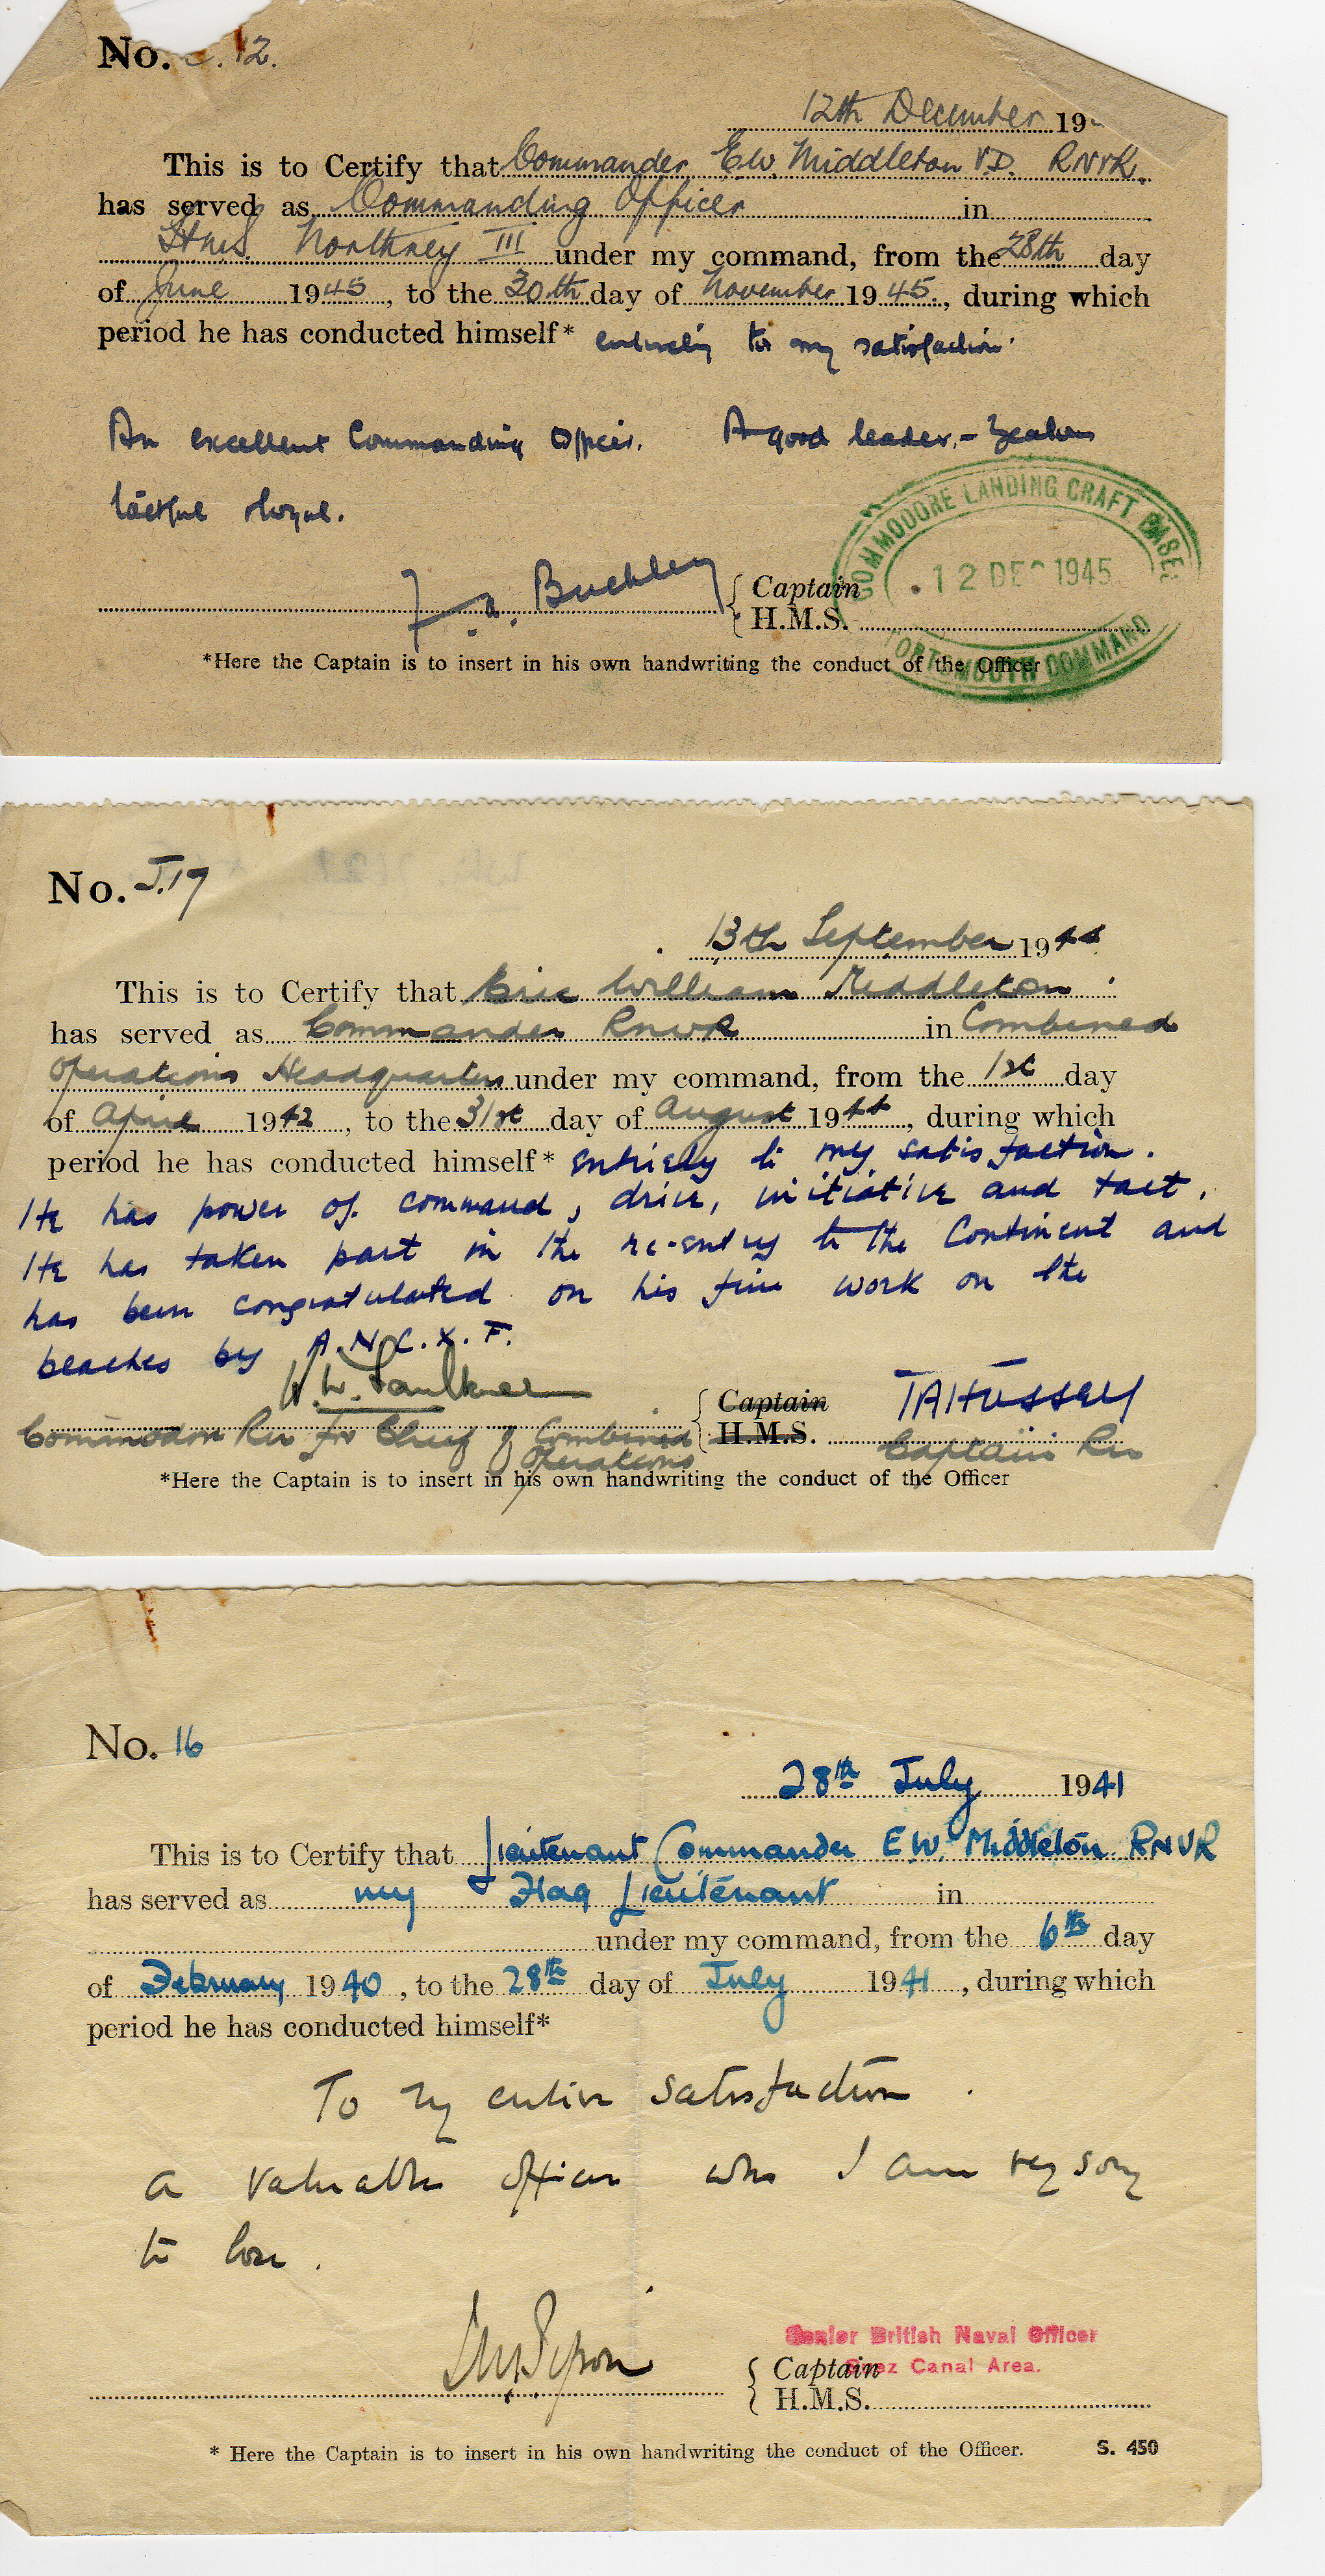 No. 12.
12th December 19
This is to Certify that Commander E.W. Middleton V.D. RNVR.
has served as Commanding Officer in
H.M.S. Northney III under my command, from the 28th day
of June 1945, to the 30th day of November 1945, during which
period he has conducted himself* entirely to my satisfaction.
An excellent Commanding Officer. A good leader, - Zealous
tactful & loyal.
F. A. Buckley { Captain
H.M.S.
COMMODORE LANDING CRAFT BASES
12 DEC 1945
PORTSMOUTH COMMAND
*Here the Captain is to insert in his own handwriting the conduct of the Officer
No. J.17
13th September 1944
This is to Certify that Eric William Middleton
has served as Commander RNVR in Combined
Operations Headquarters under my command, from the 1st day
of April 1942, to the 31st day of August 1944, during which
period he has conducted himself* entirely to my satisfaction.
He has power of command, drive, initiative and tact.
He has taken part in the re-entry to the Continent and
has been congratulated on his fine work on the
beaches by A.N.C.X.F.
W. Faulkner { Captain TAHussey
Commodore RN for Chief of Combined Operations H.M.S. Captain RN
*Here the Captain is to insert in his own handwriting the conduct of the Officer
No. 16
28th July 1941
This is to Certify that Lieutenant Commander E.W. Middleton RNVR
has served as my Flag Lieutenant in
under my command, from the 6th day
of February 1940, to the 28th day of July 1941, during which
period he has conducted himself*
To my entire satisfaction.
a valuable officer who I am very sorry
to lose.
Senior British Naval Officer
Suez Canal Area.
{ Captain
H.M.S.
* Here the Captain is to insert in his own handwriting the conduct of the Officer. S. 450